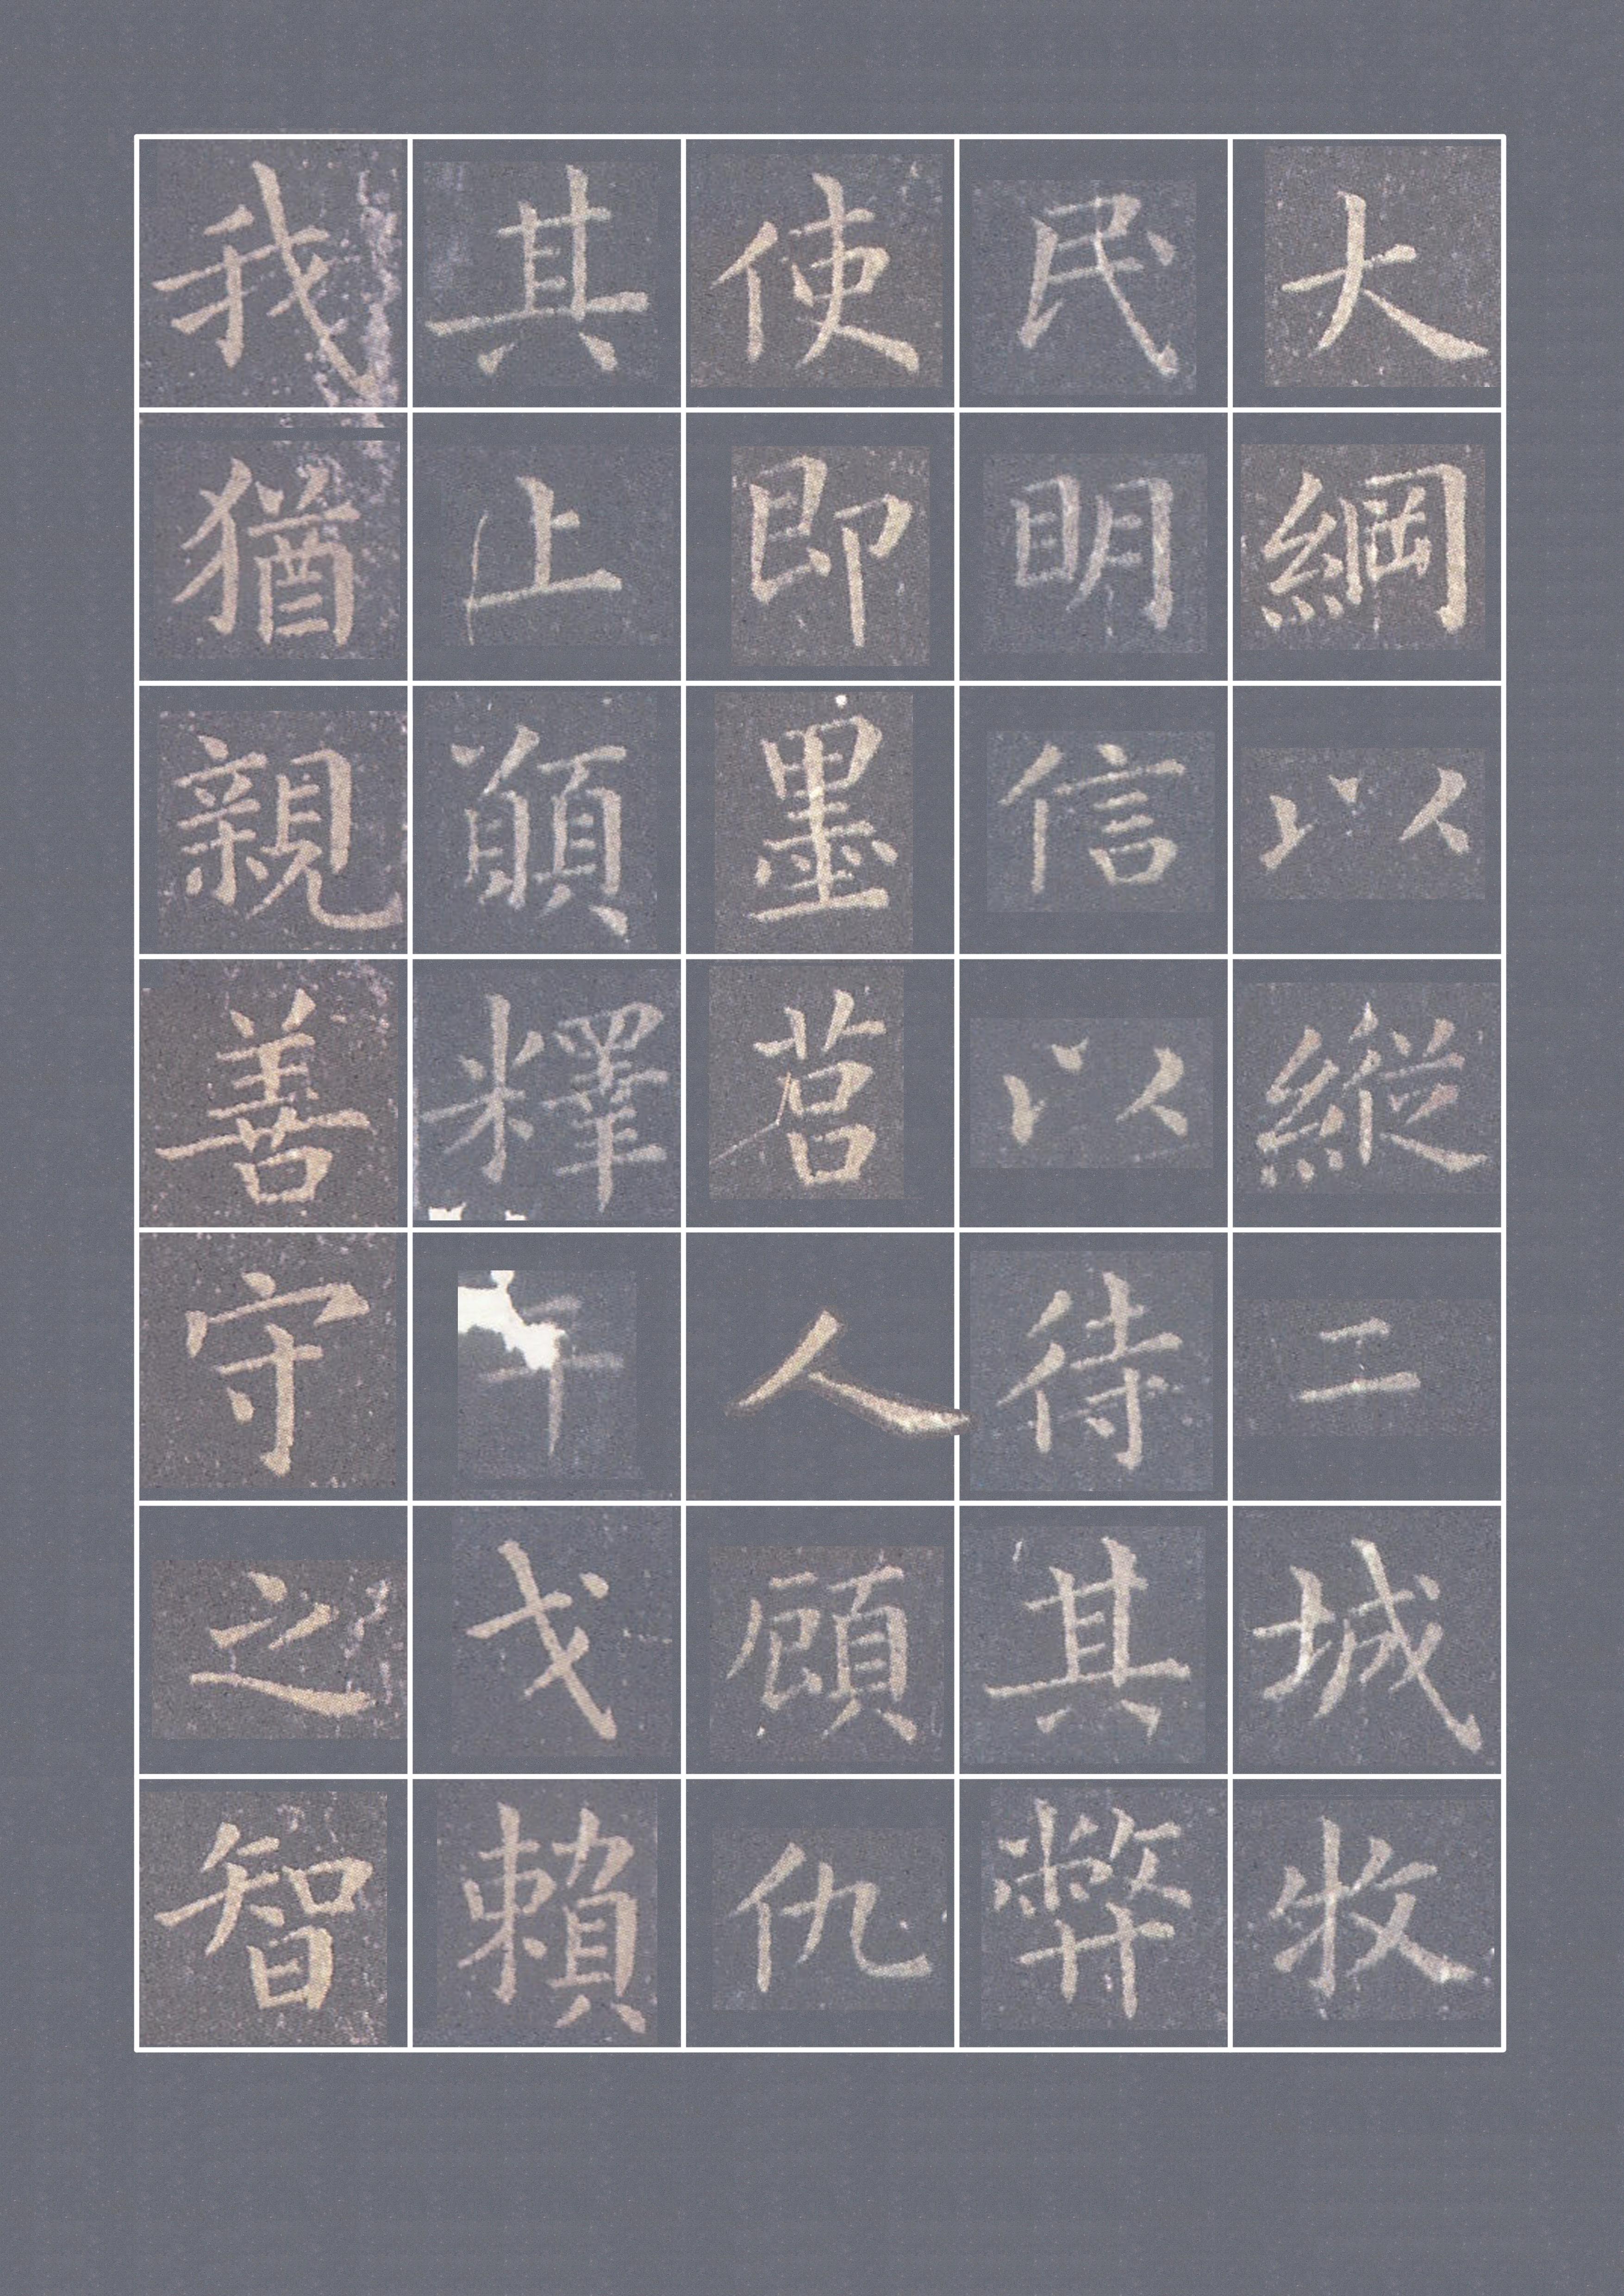 大綱以縱二城牧
民明信以待其弊
使即墨莒人顧仇
其上願釋干戈賴
我猶親善守之智